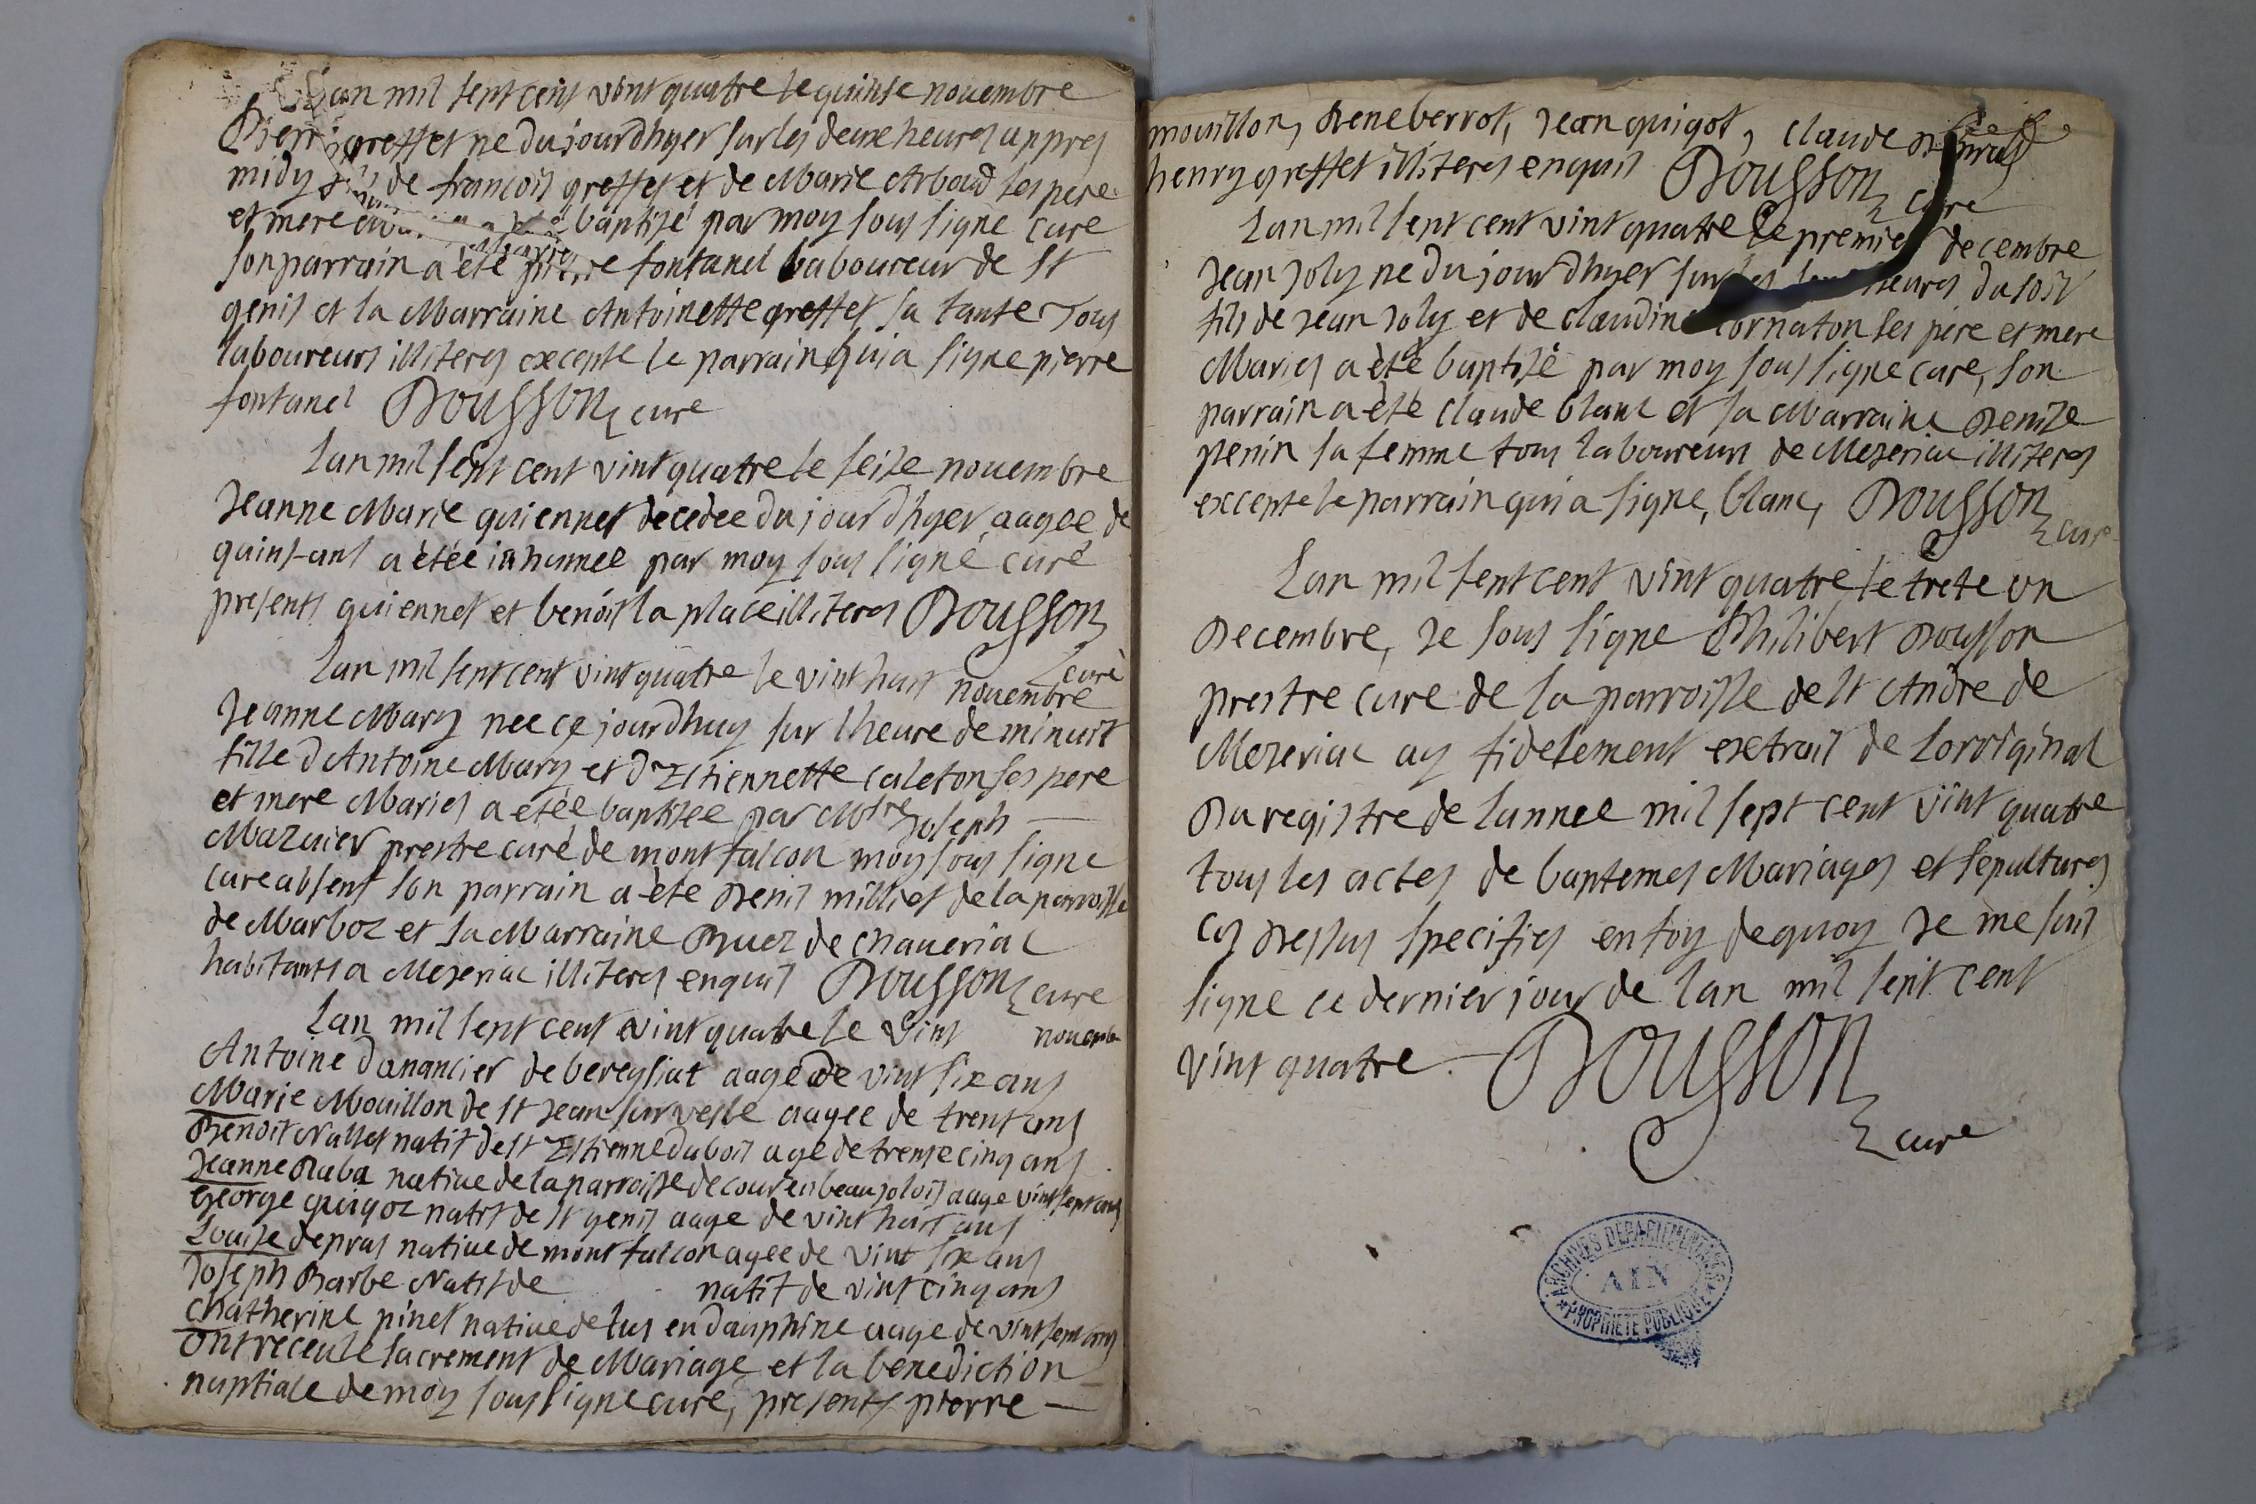 Lan mil sept cent vint quatre le quinse novembre
Pierre greffet ne du jourdhyer sur les deux heures appres
midy fils de francois greffet et de Marie Arbaud ses pere
et mere baptisé par moy sous signe cure
son parrain a été pierre fontanel laboureur de St
genis et la Marraine Antoinette greffet sa tante Tous
laboureurs illiteres excepte le parrain qui a signe pierre
fontanel Dousson cure
Lan mil sept cent vint quatre le seise novembre
Jeanne Marie guiennet decedee du jour dhyer aagee de
quins-ans a étée inhumee par moy sous signé curé
presents guiennet et benoist la place illiteres Dousson
curé
Lan mil sept cent vint quatre le vint huit novembre
Jeanne Mary nee ce jourdhuy sur lheure de minuit
fille dAntoine Mary et dEstiennette caleton ses pere
et mere Maries a étée baptisee par Mtre Joseph
Mazuier prestre curé de montfalcon moy sous signe
cure absent son parrain a été Denis milliet de la parroisse
de Marboz et sa Marraine Buez de chaveriac
habitants a Mezeriac illiteres enquis Dousson cure
Lan mil sept cent vint quatre le vint novembre
Antoine danancier de bereysiat aagé de vint six ans
Marie Mouillon de st Jean sur vesle aagee de trent ans
Benoit Nallet natif de st Estienne du bois agé de trense cinq ans
Jeanne Raba native de la parroisse de cour en beaujolois aage vint sept ans
George guigoz natif de st genis aage de vint huit ans
Louise depras native de montfalcon agee de vint six ans
Joseph Barbe Natif de natif de vint cinq ans
Chatherine pinet native de lus en dauphine aage de vint sept ans
Ont receu le sacrement de Mariage et la benediction
nuptiale de moy sous signe cure, presents pierre
mouillon, Rene berrot, Jean guigot, claude
henry greffet illiteres enquis Dousson cure
Lan mil sept cent vint quatre Le premier decembre
Jean Joly ne du jour dhyer sur les heures du soir
fils de Jean Joly et de claudine cornaton ses pére et mere
Maries a été baptisé par moy sous signe cure, son
parrain a été claude blanc et sa Marraine Denise
penin sa femme tous laboureurs de Mezeriac illiteres
excepte le parrain qui a signe, blanc, Dousson cure
Lan mil sept cent vint quatre le trete un
Decembre, Je sous signe Philibert Dousson
prestre cure de la parroisse de st André de
Mezeriac ay fidelement extrait de Lorriginal
Du registre de Lannee mil sept cent vint quatre
tous les actes de baptemes Mariages et sepultures
cy Dessus specifies en foy de quoy Je me suis
signe ce dernier jour de lan mil sept cent
vint quatre Dousson
cure
ARCHIVES DEPARTEMENTALES
AIN
PROPRIETE PUBLIQUE